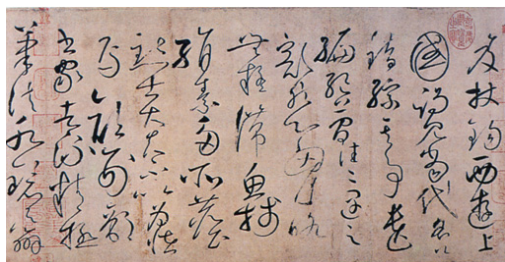 笈杖錫西遊上
國謁見當代名公
錯綜其事遺
編絕簡往往遇之
豁然心胸略
無疑滯魚牋
絹素多所塵
點士大夫不以為怪
焉顏刑部
書家者流精極
筆法水鏡之辯